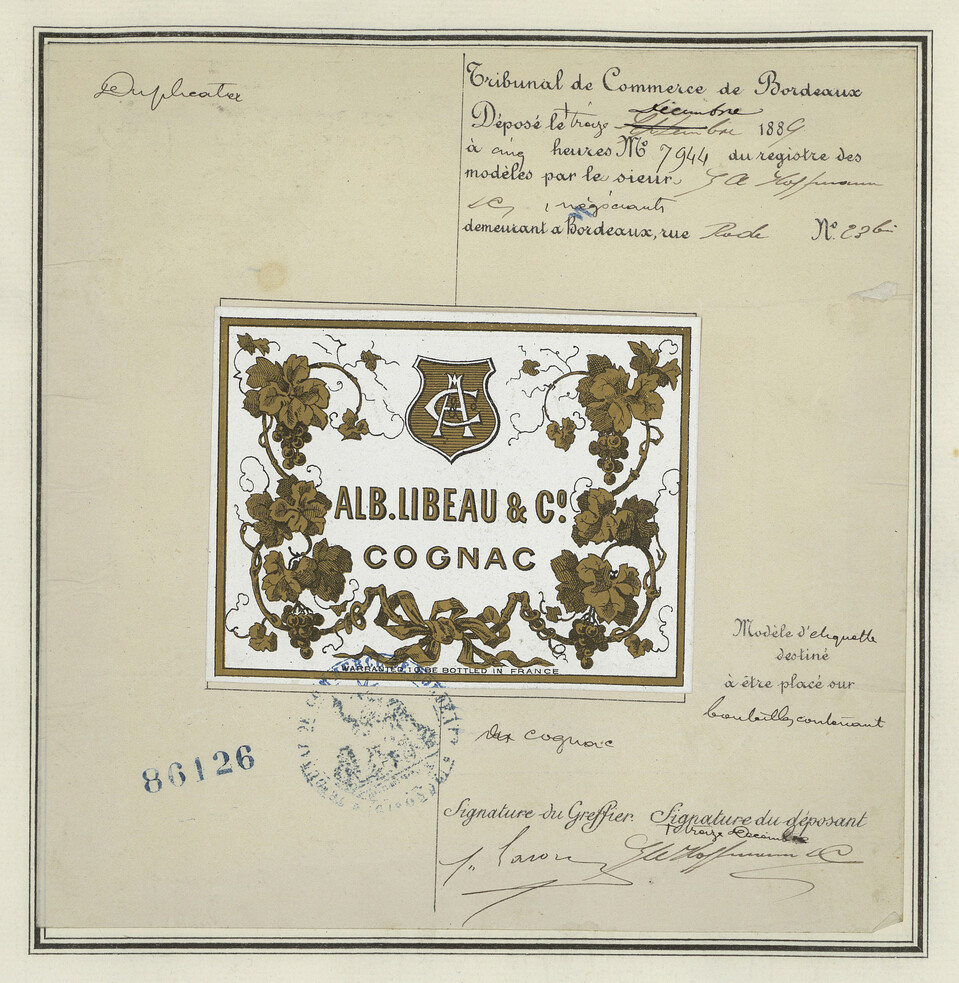 Duplicata
Tribunal de Commerce de Bordeaux
Déposé le treize Décembre 1889
à cinq heures Nº 7944 du registre des
modèles par le sieur Hoffmann
& Cie, négociants
demeurant à Bordeaux, rue Rode Nº. 23 bis
AC
ALB. LIBEAU & Cº.
COGNAC
WARRANTED TO BE BOTTLED IN FRANCE
Modèle d'etiquette
destiné
à être placé sur
bouteilles contenant
du cognac
86126
Signature du Greffier. Signature du déposant
treize Décembre
Hoffmann